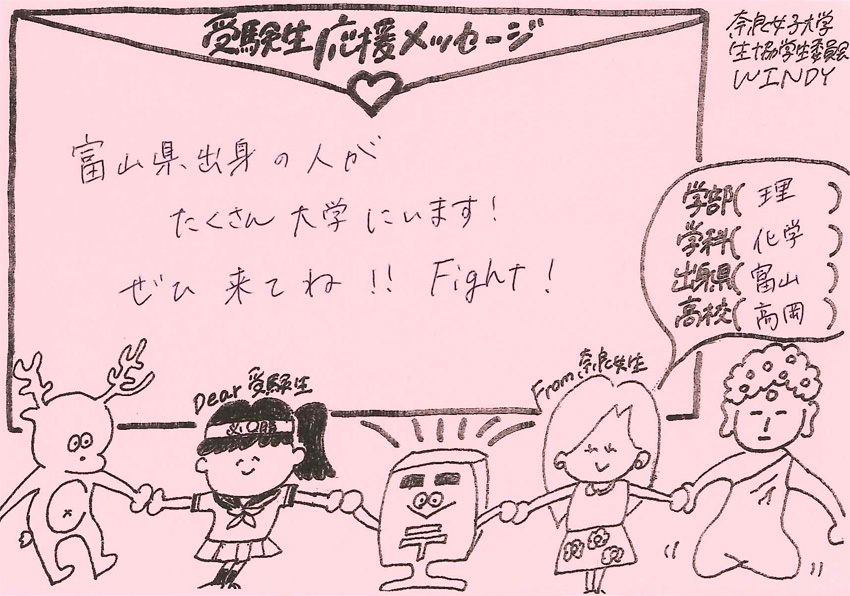 受験生応援メッセージ
奈良女子大学
生協学生委員会
WINDY
富山県出身の人が
たくさん大学にいます!
ぜひ来てね!! Fight!
学部(理)
学科(化学)
出身県(富山)
高校(高岡)
Dear 受験生
From
必勝
〒